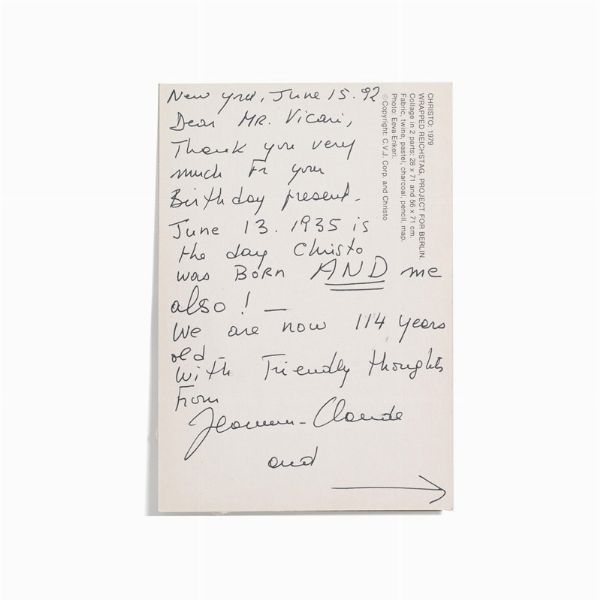 New York, June 15.92
Dear MR. Vicari,
Thank you very
much For your
Birthday present.
June 13. 1935 is
the day Christo
was BORN AND me
also! —
We are now 114 years
old
With Friendly thoughts
From
Jeanne-Claude
and
CHRISTO, 1979
WRAPPED REICHSTAG, PROJECT FOR BERLIN
Collage in 2 parts: 28 x 71 and 56 x 71 cm.
Fabric, twine, pastel, charcoal, pencil, map.
Photo: Eeva-Inkeri.
©Copyright: C.V.J. Corp and Christo